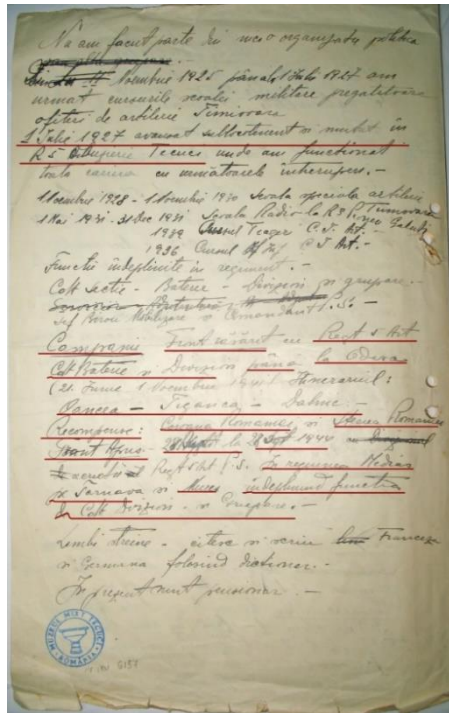 Nu am facut parte din nici o organizatie politica
Noembrie 1925 până la 1 Iulie 1927 am
urmat cursurile scoalei militare pregatitoare
ofiteri de artilerie Timisoara
1 Iulie 1927 avansat sublocotenent si mutat in
R 5 Tecuci unde am functionat
toata cariera cu urmatoarele intreruperi. —
1 Noembrie 1928 - 1 Noembrie 1930 Scoala speciala artilerie
1 Mai 1931 - 31 Dec 1931 Scoala Radio la R 3
Cursul Trageri C.T. Art. —
1936 Cursul C T Art. —
Functii indeplinite in regiment. —
Cdt Sectie - Baterie - Divizion si grupare. —
Sef Birou Mobilizare si Comandant P.S. —
Campanii Front răsărit cu Regt 5 Art
Cdt Baterie si Divizion până la Odesa
(21 Iunie 1 Noembrie 1941) Itinerariul:
— Tiganca —
Recompense: Coroana Romaniei si Steaua Romaniei
Front Apus la 1944
Regt 5 Art P.S. In regiunea Medias
Tarnava si Mures indeplinind functia
de Cdt Divizion si Grupare. —
Limbi straine — citire si scriere Franceza
si Germana folosind dictionar. —
In prezent sunt pensionar. —
MUZEUL MIXT TECUCI
ROMÂNIA